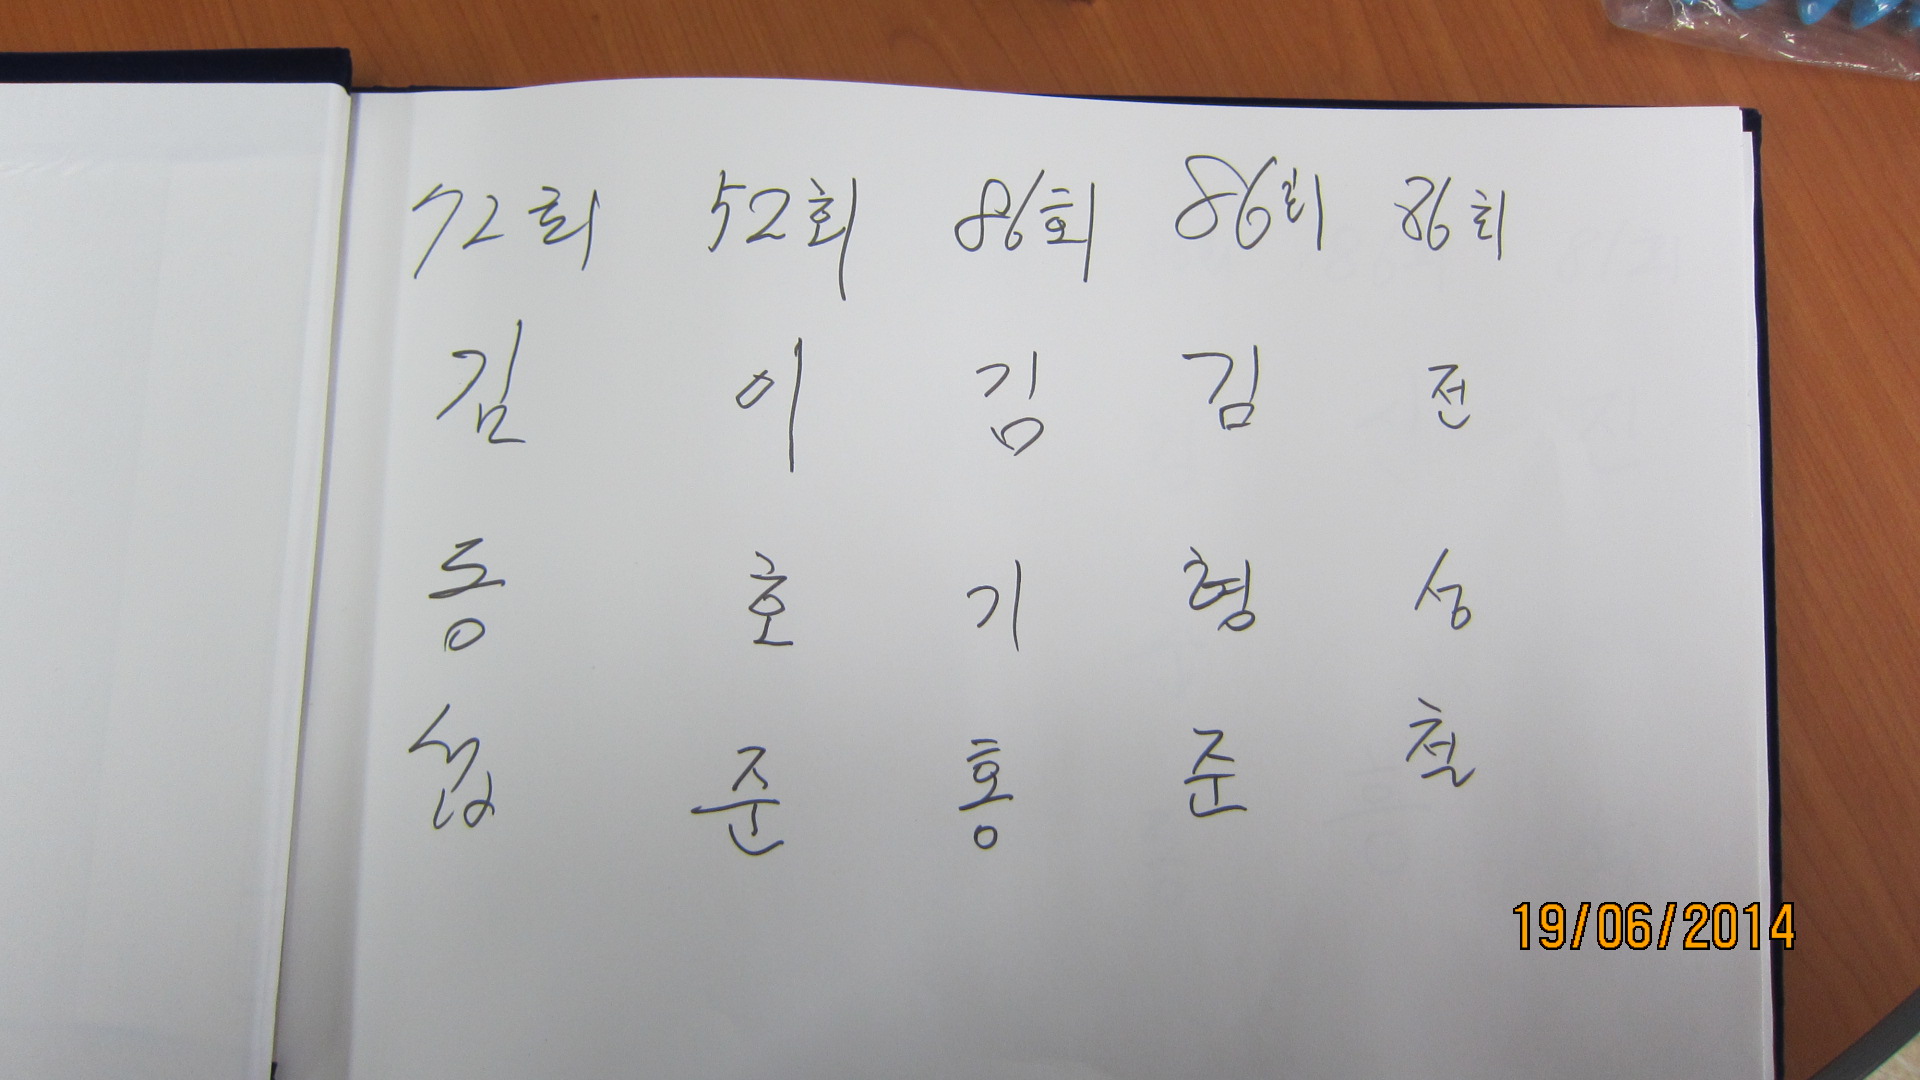 72회 52회 86회 86회 86회
김 이 김 김 전
동 호 기 형 성
섭 준 홍 준 철
19/06/2014